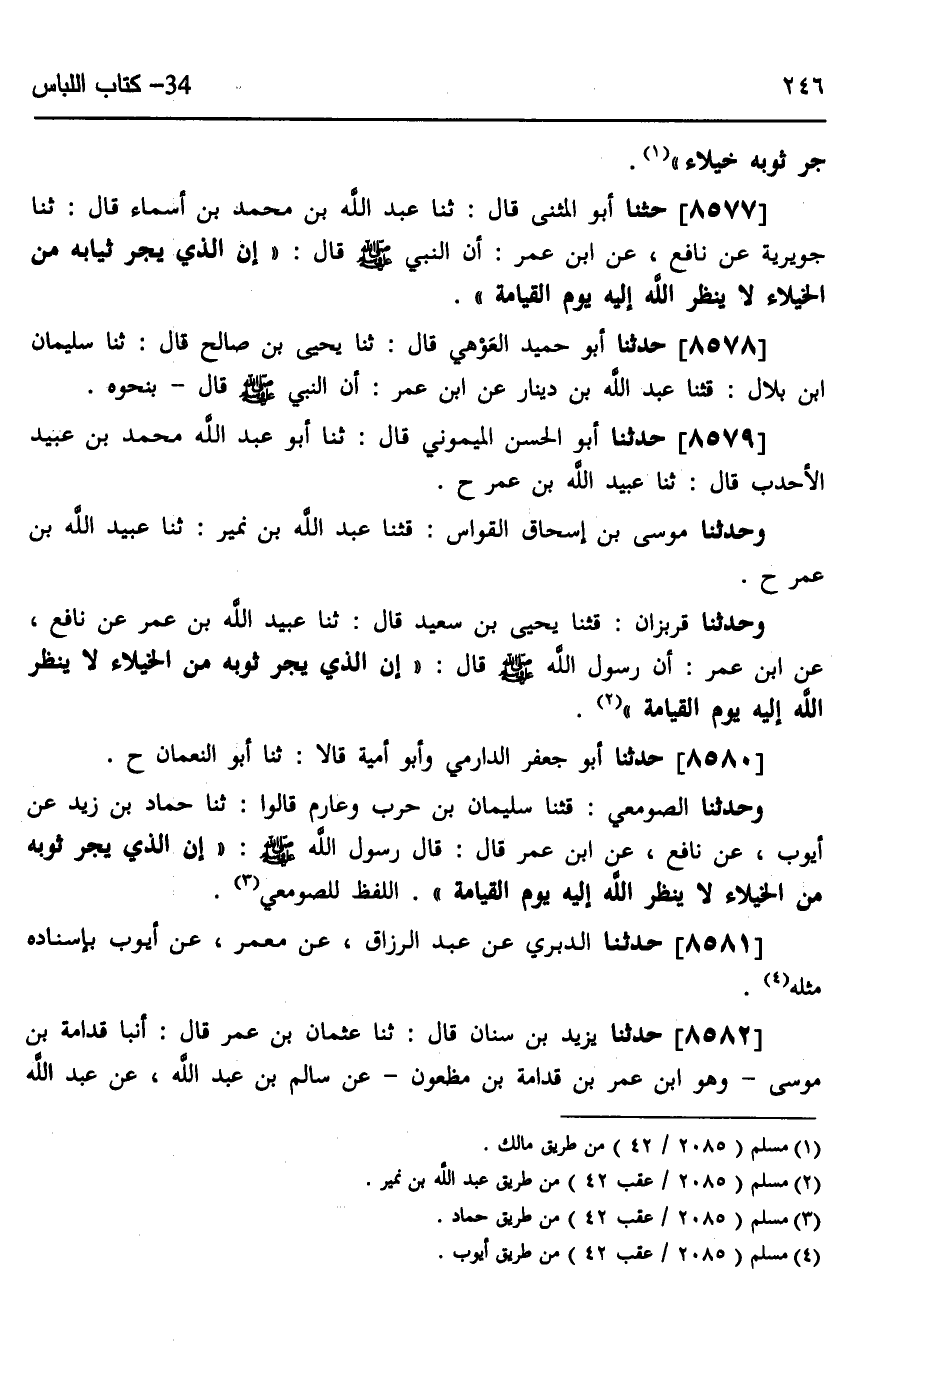 ٢٤٦ 34- كتاب اللباس
جر ثوبه خيلاء »(١) .
[٨٥٧٧] حثنا أبو المثنى قال : ثنا عبد اللَّه بن محمد بن أسماء قال : ثنا
جويرية عن نافع ، عن ابن عمر : أن النبي ﷺ قال : « إن الذي يجر ثيابه من
الخيلاء لا ينظر اللَّه إليه يوم القيامة » .
[٨٥٧٨] حدثنا أبو حميد العَوْهي قال : ثنا يحيى بن صالح قال : ثنا سليمان
ابن بلال : قثنا عبد اللَّه بن دينار عن ابن عمر : أن النبي ﷺ قال – بنحوه .
[٨٥٧٩] حدثنا أبو الحسن الميموني قال : ثنا أبو عبد اللَّه محمد بن عبيد
الأحدب قال : ثنا عبيد اللَّه بن عمر ح .
وحدثنا موسى بن إسحاق القواس : قثنا عبد اللَّه بن نمير : ثنا عبيد اللَّه بن
عمر ح .
وحدثنا قربزان : قثنا يحيى بن سعيد قال : ثنا عبيد اللَّه بن عمر عن نافع ،
عن ابن عمر : أن رسول اللَّه ﷺ قال : « إن الذي يجر ثوبه من الخيلاء لا ينظر
اللَّه إليه يوم القيامة »(٢) .
[٨٥٨٠] حدثنا أبو جعفر الدارمي وأبو أمية قالا : ثنا أبو النعمان ح .
وحدثنا الصومعي : قثنا سليمان بن حرب وعارم قالوا : ثنا حماد بن زيد عن
أيوب ، عن نافع ، عن ابن عمر قال : قال رسول اللَّه ﷺ : « إن الذي يجر ثوبه
من الخيلاء لا ينظر اللَّه إليه يوم القيامة » . اللفظ للصومعي(٣) .
[٨٥٨١] حدثنا الدبري عن عبد الرزاق ، عن معمر ، عن أيوب بإسناده
مثله(٤) .
[٨٥٨٢] حدثنا يزيد بن سنان قال : ثنا عثمان بن عمر قال : أنبا قدامة بن
موسى – وهو ابن عمر بن قدامة بن مظعون – عن سالم بن عبد اللَّه ، عن عبد اللَّه
(١) مسلم ( ٢٠٨٥ / ٤٢ ) من طريق مالك .
(٢) مسلم ( ٢٠٨٥ / عقب ٤٢ ) من طريق عبد اللَّه بن نمير .
(٣) مسلم ( ٢٠٨٥ / عقب ٤٢ ) من طريق حماد .
(٤) مسلم ( ٢٠٨٥ / عقب ٤٢ ) من طريق أيوب .